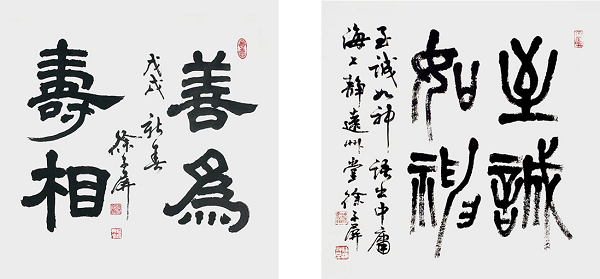 善為
壽相
戊戌 新春
徐子屏
至誠
如神
至誠如神 語出中庸
海上靜遠艸堂徐子屏